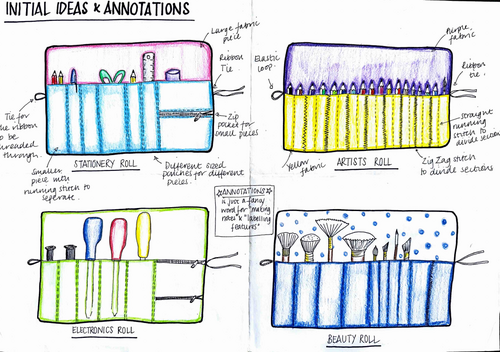 INITIAL IDEAS & ANNOTATIONS
Large fabric
piece
Ribbon
Tie
Tie for
the ribbon
to be
threaded
through.
Zip
pocket for
small pieces
Smaller
piece with
running stitch to
seperate.
STATIONERY ROLL
Different sized
pouches for different
pieces.
Purple
fabric
Elastic
loop.
Ribbon
tie.
Straight
running
stitch to
divide sections
Yellow
fabric
ARTISTS ROLL
Zig Zag stitch
to divide sections
ANNOTATIONS
is just a fancy
word for "making
notes" & "labelling
features"
ELECTRONICS ROLL
BEAUTY ROLL